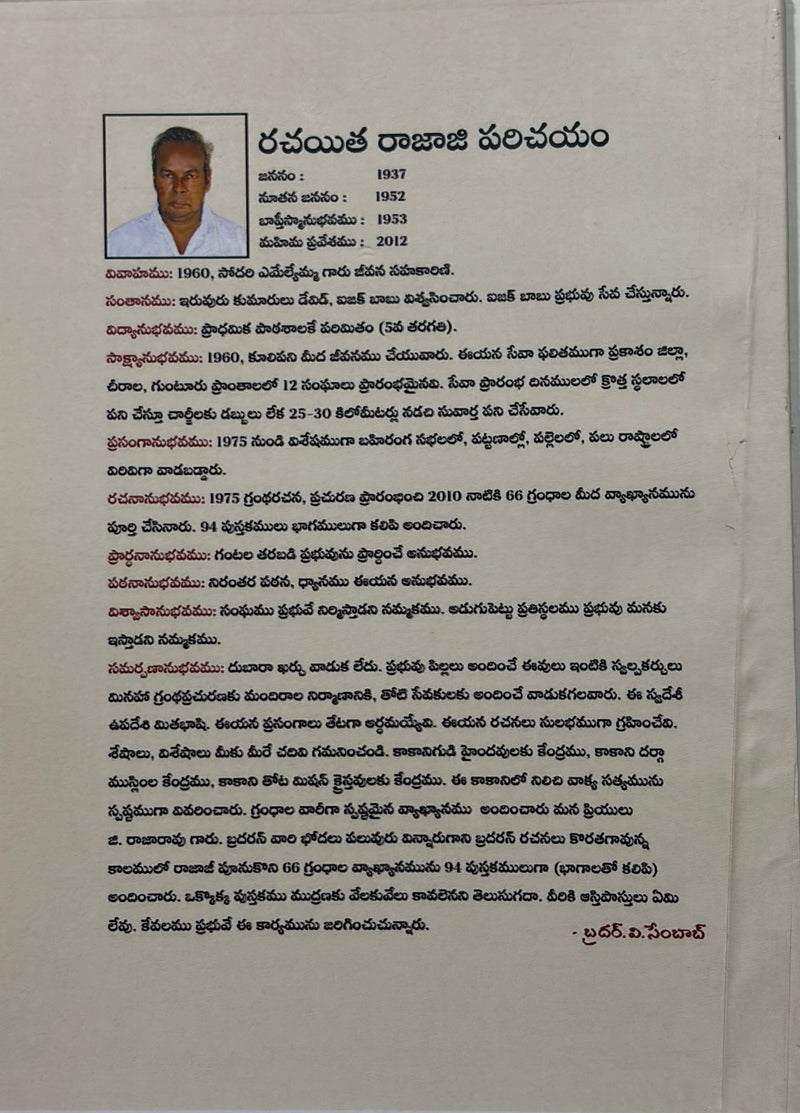 రచయిత రాజాజి పరిచయం
జననం : 1937
నూతన జననం : 1952
బాప్తిస్మానుభవము : 1953
మహిమ ప్రవేశము : 2012
వివాహము: 1960, సోదరి ఎమేల్యేమ్మ గారు జీవన సహకారిణి.
సంతానము: ఇరువురు కుమారులు డేవిడ్, ఐజక్ బాబు విశ్వసించారు. ఐజక్ బాబు ప్రభువు సేవ చేస్తున్నారు.
విద్యానుభవము: ప్రాధమిక పాఠశాలకే పరిమితం (5వ తరగతి).
సాక్ష్యానుభవము: 1960, కూలిపని మీద జీవనము చేయువారు. ఈయన సేవా ఫలితముగా ప్రకాశం జిల్లా,
చీరాల, గుంటూరు ప్రాంతాలలో 12 సంఘాలు ప్రారంభమైనవి. సేవా ప్రారంభ దినములలో క్రొత్త స్థలాలలో
పని చేస్తూ చార్జీలకు డబ్బులు లేక 25-30 కిలోమీటర్లు నడచి సువార్త పని చేసేవారు.
ప్రసంగానుభవము: 1975 నుండి విశేషముగా బహిరంగ సభలలో, పట్టణాల్లో, పల్లెలలో, పలు రాష్ట్రాలలో
విరివిగా వాడబడ్డారు.
రచనానుభవము: 1975 గ్రంథరచన, ప్రచురణ ప్రారంభించి 2010 నాటికి 66 గ్రంధాల మీద వ్యాఖ్యానమును
పూర్తి చేసినారు. 94 పుస్తకములు భాగములుగా కలిపి అందించారు.
ప్రార్ధనానుభవము: గంటల తరబడి ప్రభువును ప్రార్ధించే అనుభవము.
పఠనానుభవము: నిరంతర పఠన, ధ్యానము ఈయన అనుభవము.
విశ్వాసానుభవము: సంఘము ప్రభువే నిర్మిస్తాడని నమ్మకము. అడుగుపెట్టు ప్రతిస్థలము ప్రభువు మనకు
ఇస్తాడని నమ్మకము.
సమర్పణానుభవము: దుబారా ఖర్చు వాడుక లేదు. ప్రభువు పిల్లలు అందించే ఈవులు ఇంటికి స్వల్పకర్చులు
మినహా గ్రంథప్రచురణకు మందిరాల నిర్మాణానికి, తోటి సేవకులకు అందించే వాడుకగలవారు. ఈ స్వదేశీ
ఉపదేశి మితభాషి. ఈయన ప్రసంగాలు తేటగా అర్ధమయ్యేవి. ఈయన రచనలు సులభముగా గ్రహించేవి.
శేషాలు, విశేషాలు మీకు మీరే చదివి గమనించండి. కాకానిగుడి హైందవులకు కేంద్రము, కాకాని దర్గా
ముస్లింల కేంద్రము, కాకాని తోట మిషన్ క్రైస్తవులకు కేంద్రము. ఈ కాకానిలో నిలిచి వాక్య సత్యమును
స్పష్టముగా వివరించారు. గ్రంధాల వారీగా స్పష్టమైన వ్యాఖ్యానము అందించారు మన ప్రియులు
జి. రాజారావు గారు. బ్రదరన్ వారి భోదలు పలువురు విన్నారుగాని బ్రదరన్ రచనలు కొరతగావున్న
కాలములో రాజాజీ పూనుకొని 66 గ్రంధాల వ్యాఖ్యానమును 94 పుస్తకములుగా (భాగాలతో కలిపి)
అందించారు. ఒక్కొక్క పుస్తకము ముద్రణకు వేలకువేలు కావలెనని తెలుసుగదా. వీరికి ఆస్తిపాస్తులు ఏమి
లేవు. కేవలము ప్రభువే ఈ కార్యమును జరిగించుచున్నారు.
- బ్రదర్.వి.సేంబాబ్